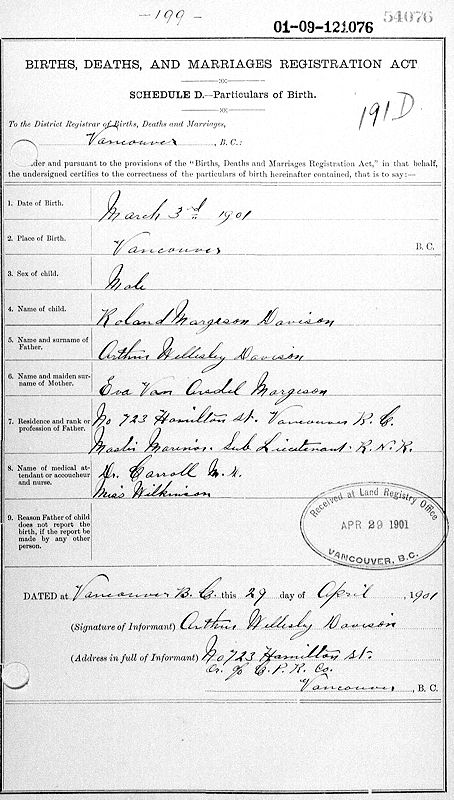 —199—
01-09-121076
54076
BIRTHS, DEATHS, AND MARRIAGES REGISTRATION ACT
SCHEDULE D.—Particulars of Birth.
191D
To the District Registrar of Births, Deaths and Marriages,
Vancouver, B.C.:
and pursuant to the provisions of the "Births, Deaths and Marriages Registration Act," in that behalf,
the undersigned certifies to the correctness of the particulars of birth hereinafter contained, that is to say:—
1. Date of Birth. March 3rd 1901
2. Place of Birth. Vancouver B. C.
3. Sex of child. Male
4. Name of child. Roland Margeson Davison
5. Name and surname of Father. Arthur Wellesley Davison
6. Name and maiden surname of Mother. Eva Van Margeson
7. Residence and rank or profession of Father. No 723 Hamilton St. Vancouver B. C.
Master Mariner. Sub Lieutenant R. N. R.
8. Name of medical attendant or accoucheur and nurse. Dr. Carroll
Miss Wilkinson
9. Reason Father of child does not report the birth, if the report be made by any other person.
Received at Land Registry Office
APR 29 1901
VANCOUVER, B.C.
DATED at Vancouver B. C. this 29 day of April, 1901
(Signature of Informant) Arthur Wellesley Davison
(Address in full of Informant) No 723 Hamilton St.
Or c/o C. P. R. Co.
Vancouver, B.C.